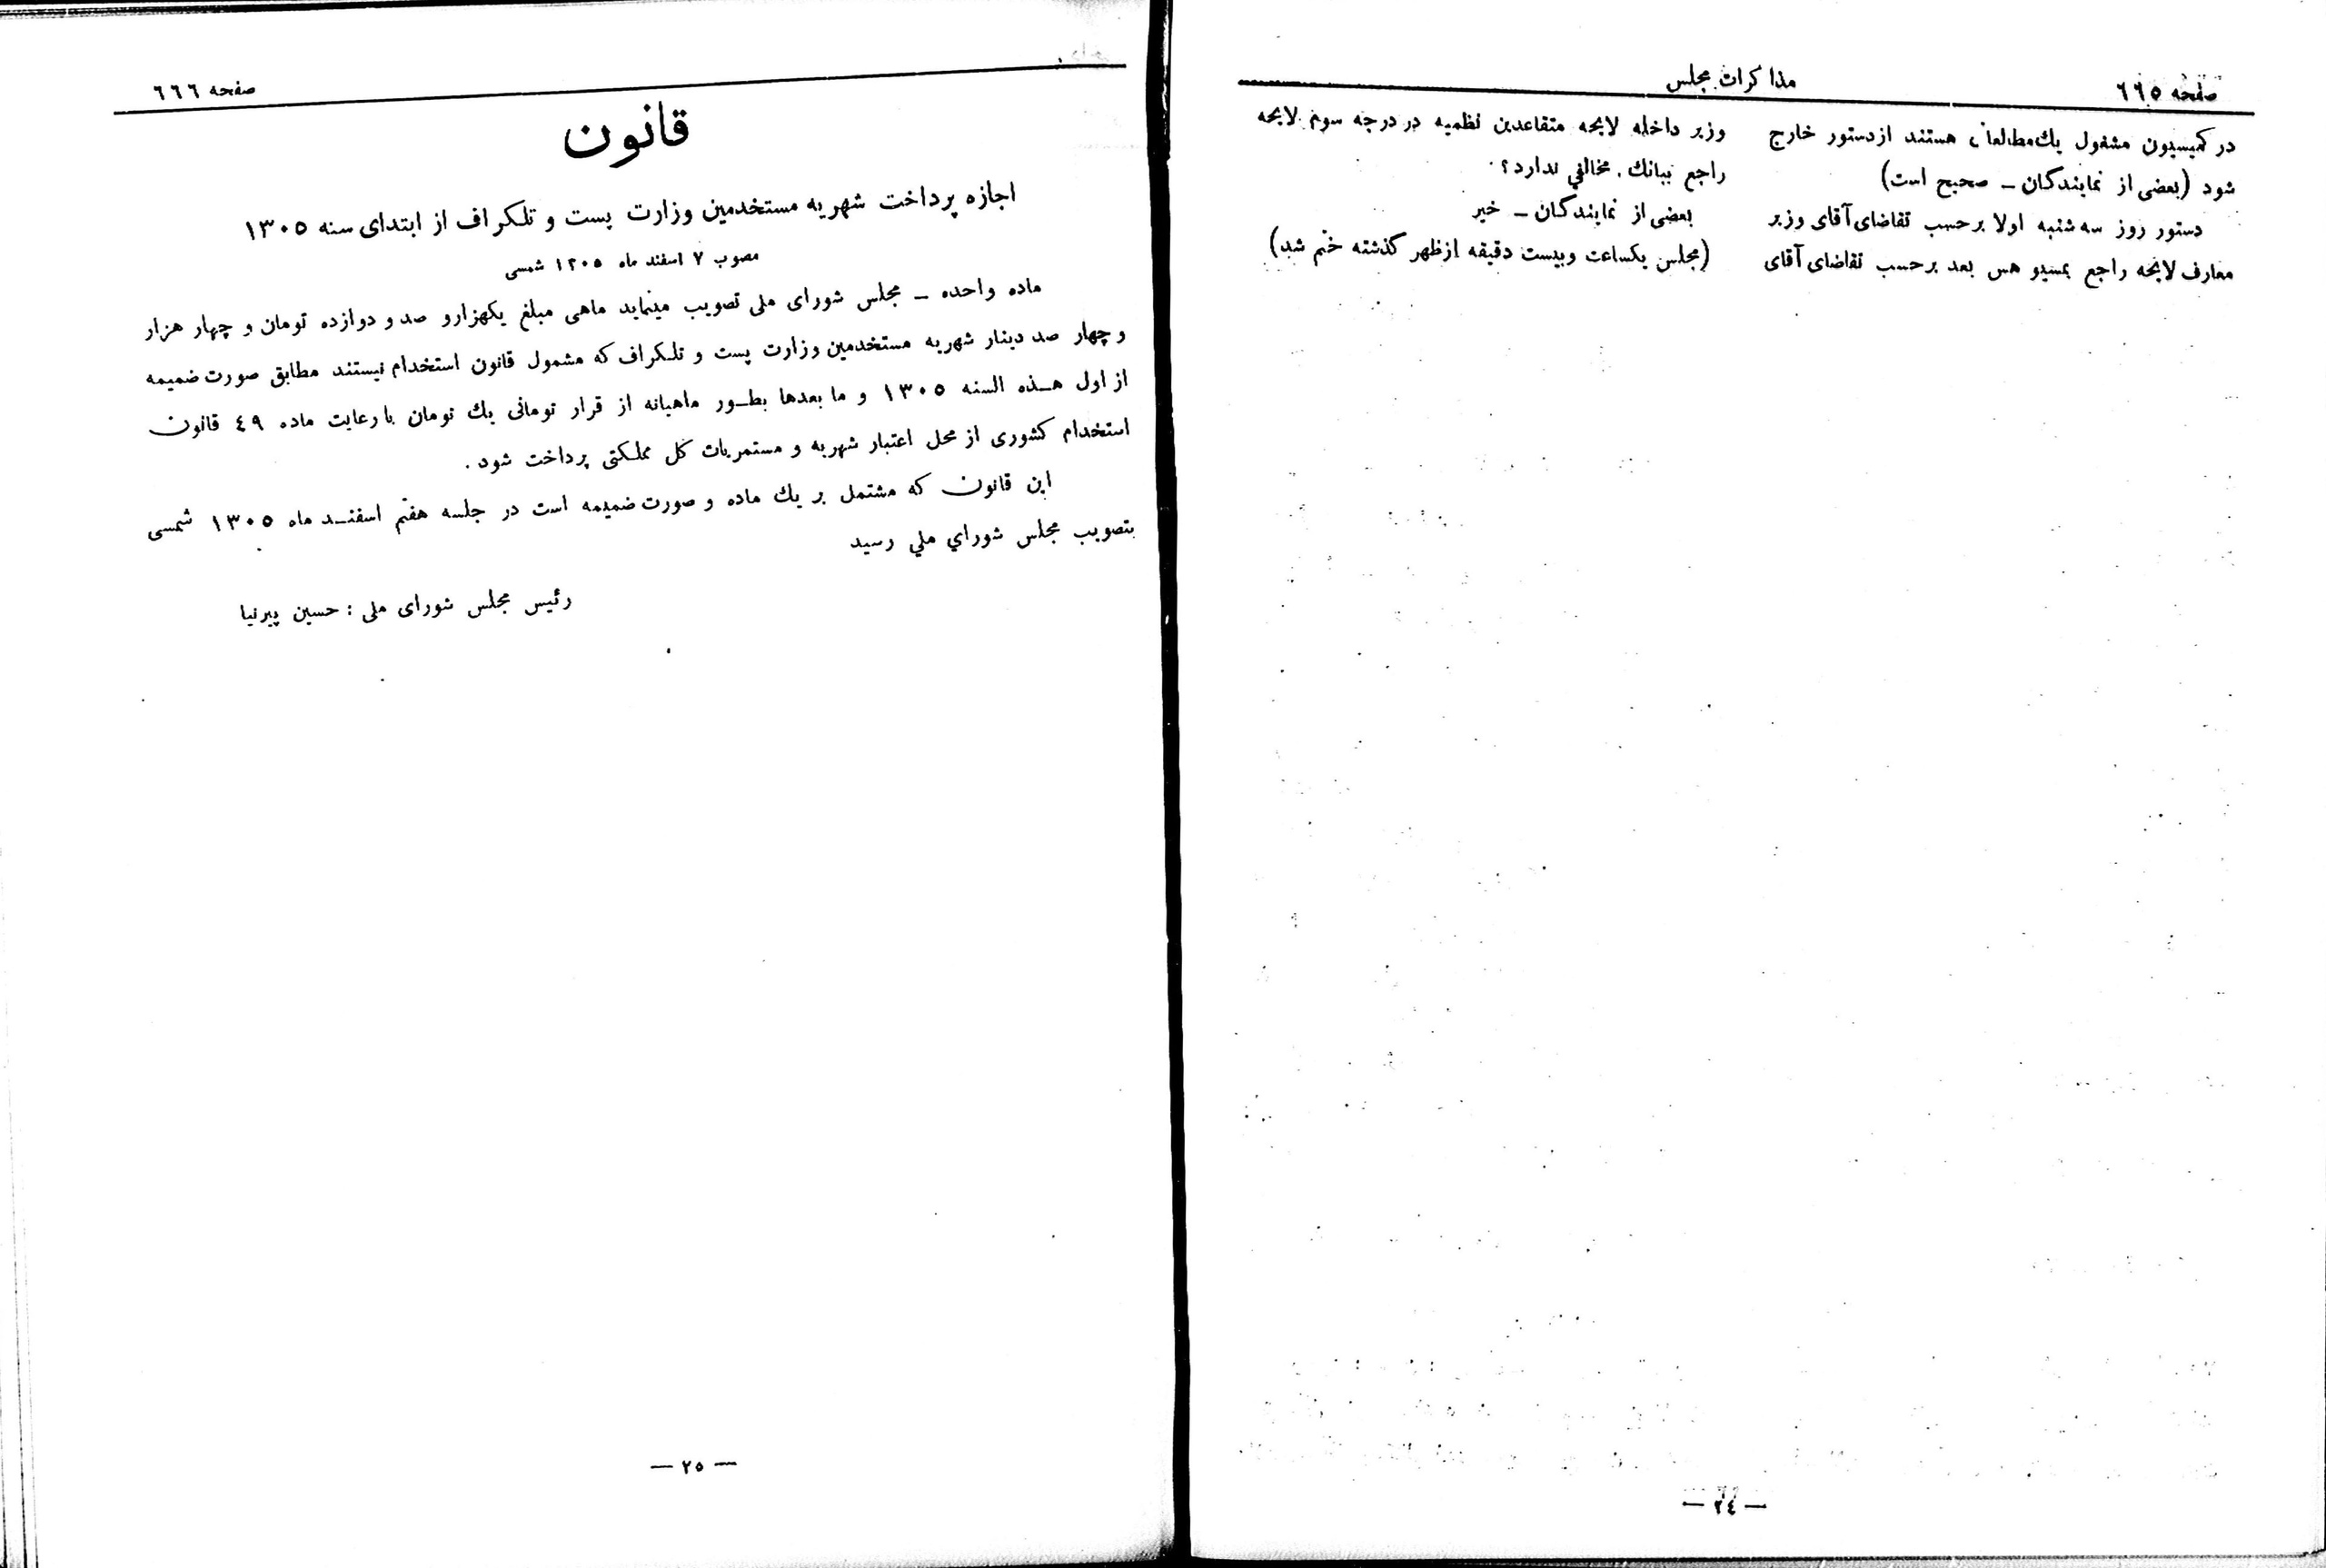 صفحه ٦٦٥
مذاکرات مجلس
در کمیسیون مشغول یك مطالعاتی هستند از دستور خارج
شود (بعضی از نمایندگان ـ صحیح است)
دستور روز سه شنبه اولا بر حسب تقاضای آقای وزیر
معارف لایحه راجع بمسیو هس بعد بر حسب تقاضای آقای
وزیر داخله لایحه متقاعدین نظمیه در درجه سوم لایحه
راجع ببانك. مخالفی ندارد؟
بعضی از نمایندگان ـ خیر
(مجلس یکساعت و بیست دقیقه از ظهر گذشته ختم شد)
— ٢٤ —
صفحه ٦٦٦
قانون
اجازه پرداخت شهریه مستخدمین وزارت پست و تلگراف از ابتدای سنه ١٣٠٥
مصوب ٧ اسفند ماه ١٣٠٥ شمسی
ماده واحده ـ مجلس شورای ملی تصویب مینماید ماهی مبلغ یکهزار و صد و دوازده تومان و چهار هزار
و چهار صد دینار شهریه مستخدمین وزارت پست و تلگراف که مشمول قانون استخدام نیستند مطابق صورت ضمیمه
از اول هـذه السنه ١٣٠٥ و ما بعدها بطـور ماهیانه از قرار تومانی یك تومان با رعایت ماده ٤٩ قانون
استخدام کشوری از محل اعتبار شهریه و مستمریات کل مملکتی پرداخت شود.
این قانون که مشتمل بر یك ماده و صورت ضمیمه است در جلسه هفتم اسفنـد ماه ١٣٠٥ شمسی
بتصویب مجلس شورای ملی رسید
رئیس مجلس شورای ملی : حسین پیرنیا
— ٢٥ —